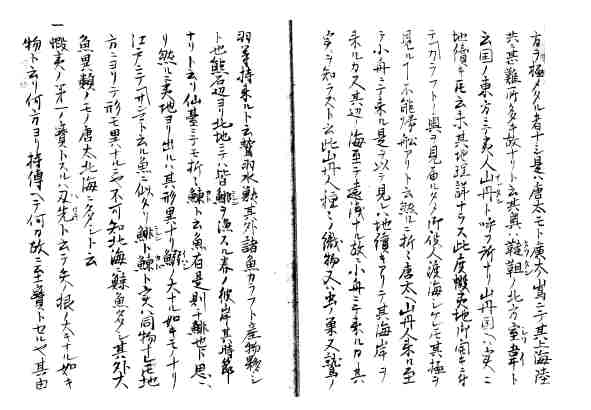 方ヲ極メタル者ナシ是ハ唐太モト廣大嶌ニテ其上海陸
共ニ其難所多キ故ナリト云其奥ハ韃靼ノ北方室韋ト
云国ノ東方ニテ夷人山丹ト呼フ所ナリ山丹国ヘハ
地續キ氏云未其地理詳ナラス此度蝦夷地御
テカラフトノ奥ヲ見届ルタメ御役人渡海シケレ氏其極ヲ
見ルヿ不能帰船アリト云然ルニ折ニ唐太ヘ山丹人来ルニ至
テ小舟ニテ来ル是ヲ以テ見レハ地續キアリテ其海岸ヲ
来ルカ又其辺ノ海至テ遠浅ナル故小舟ニテ来ルカ其
実ヲ知ラスト云此山丹人種々ノ織物又ハ虫ノ巣又鷲ノ
羽等持来ルト云鷲羽水鯨其外諸魚カラフト産物夥シ
ト也熊石辺ヨリ北地ニテハ皆鯡ヲ漁ス立春ノ彼岸其時節
ナリト云リ仙臺ニテモ折ニ鰊ト云魚有是則チ鯡也ト思ヘ
リ然ルニ夷地ヨリ出ルハ其形異ナリ鰯ノ大ナル如キモノナリ
江戸ニテコノシロト云ル魚ニ似タリ鯡ト鰊ト又ハ同物ナレ氏地
方ニヨリテ形モ異ハナルニヤ不可知北海ニ鯨魚多ク其外大
魚里類ノモノ唐太北海ニ多シト云
一蝦夷ノ第一ノ寶トスルハ刃先ト云テ手ノ根大キナル如キ
物ト云リ何方ヨリ持傳ヘテ何カ故ニ至寶トセルヤ其由